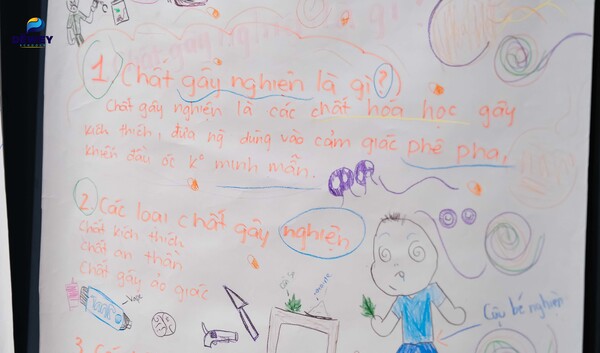 1. Chất gây nghiện là gì?
Chất gây nghiện là các chất hóa học gây
kích thích, đưa ng dùng vào cảm giác phê pha,
khiến đầu óc k° minh mẫn.
2. Các loại chất gây nghiện
Chất kích thích
Chất an thần
Chất gây ảo giác
Cậu bé nghiện